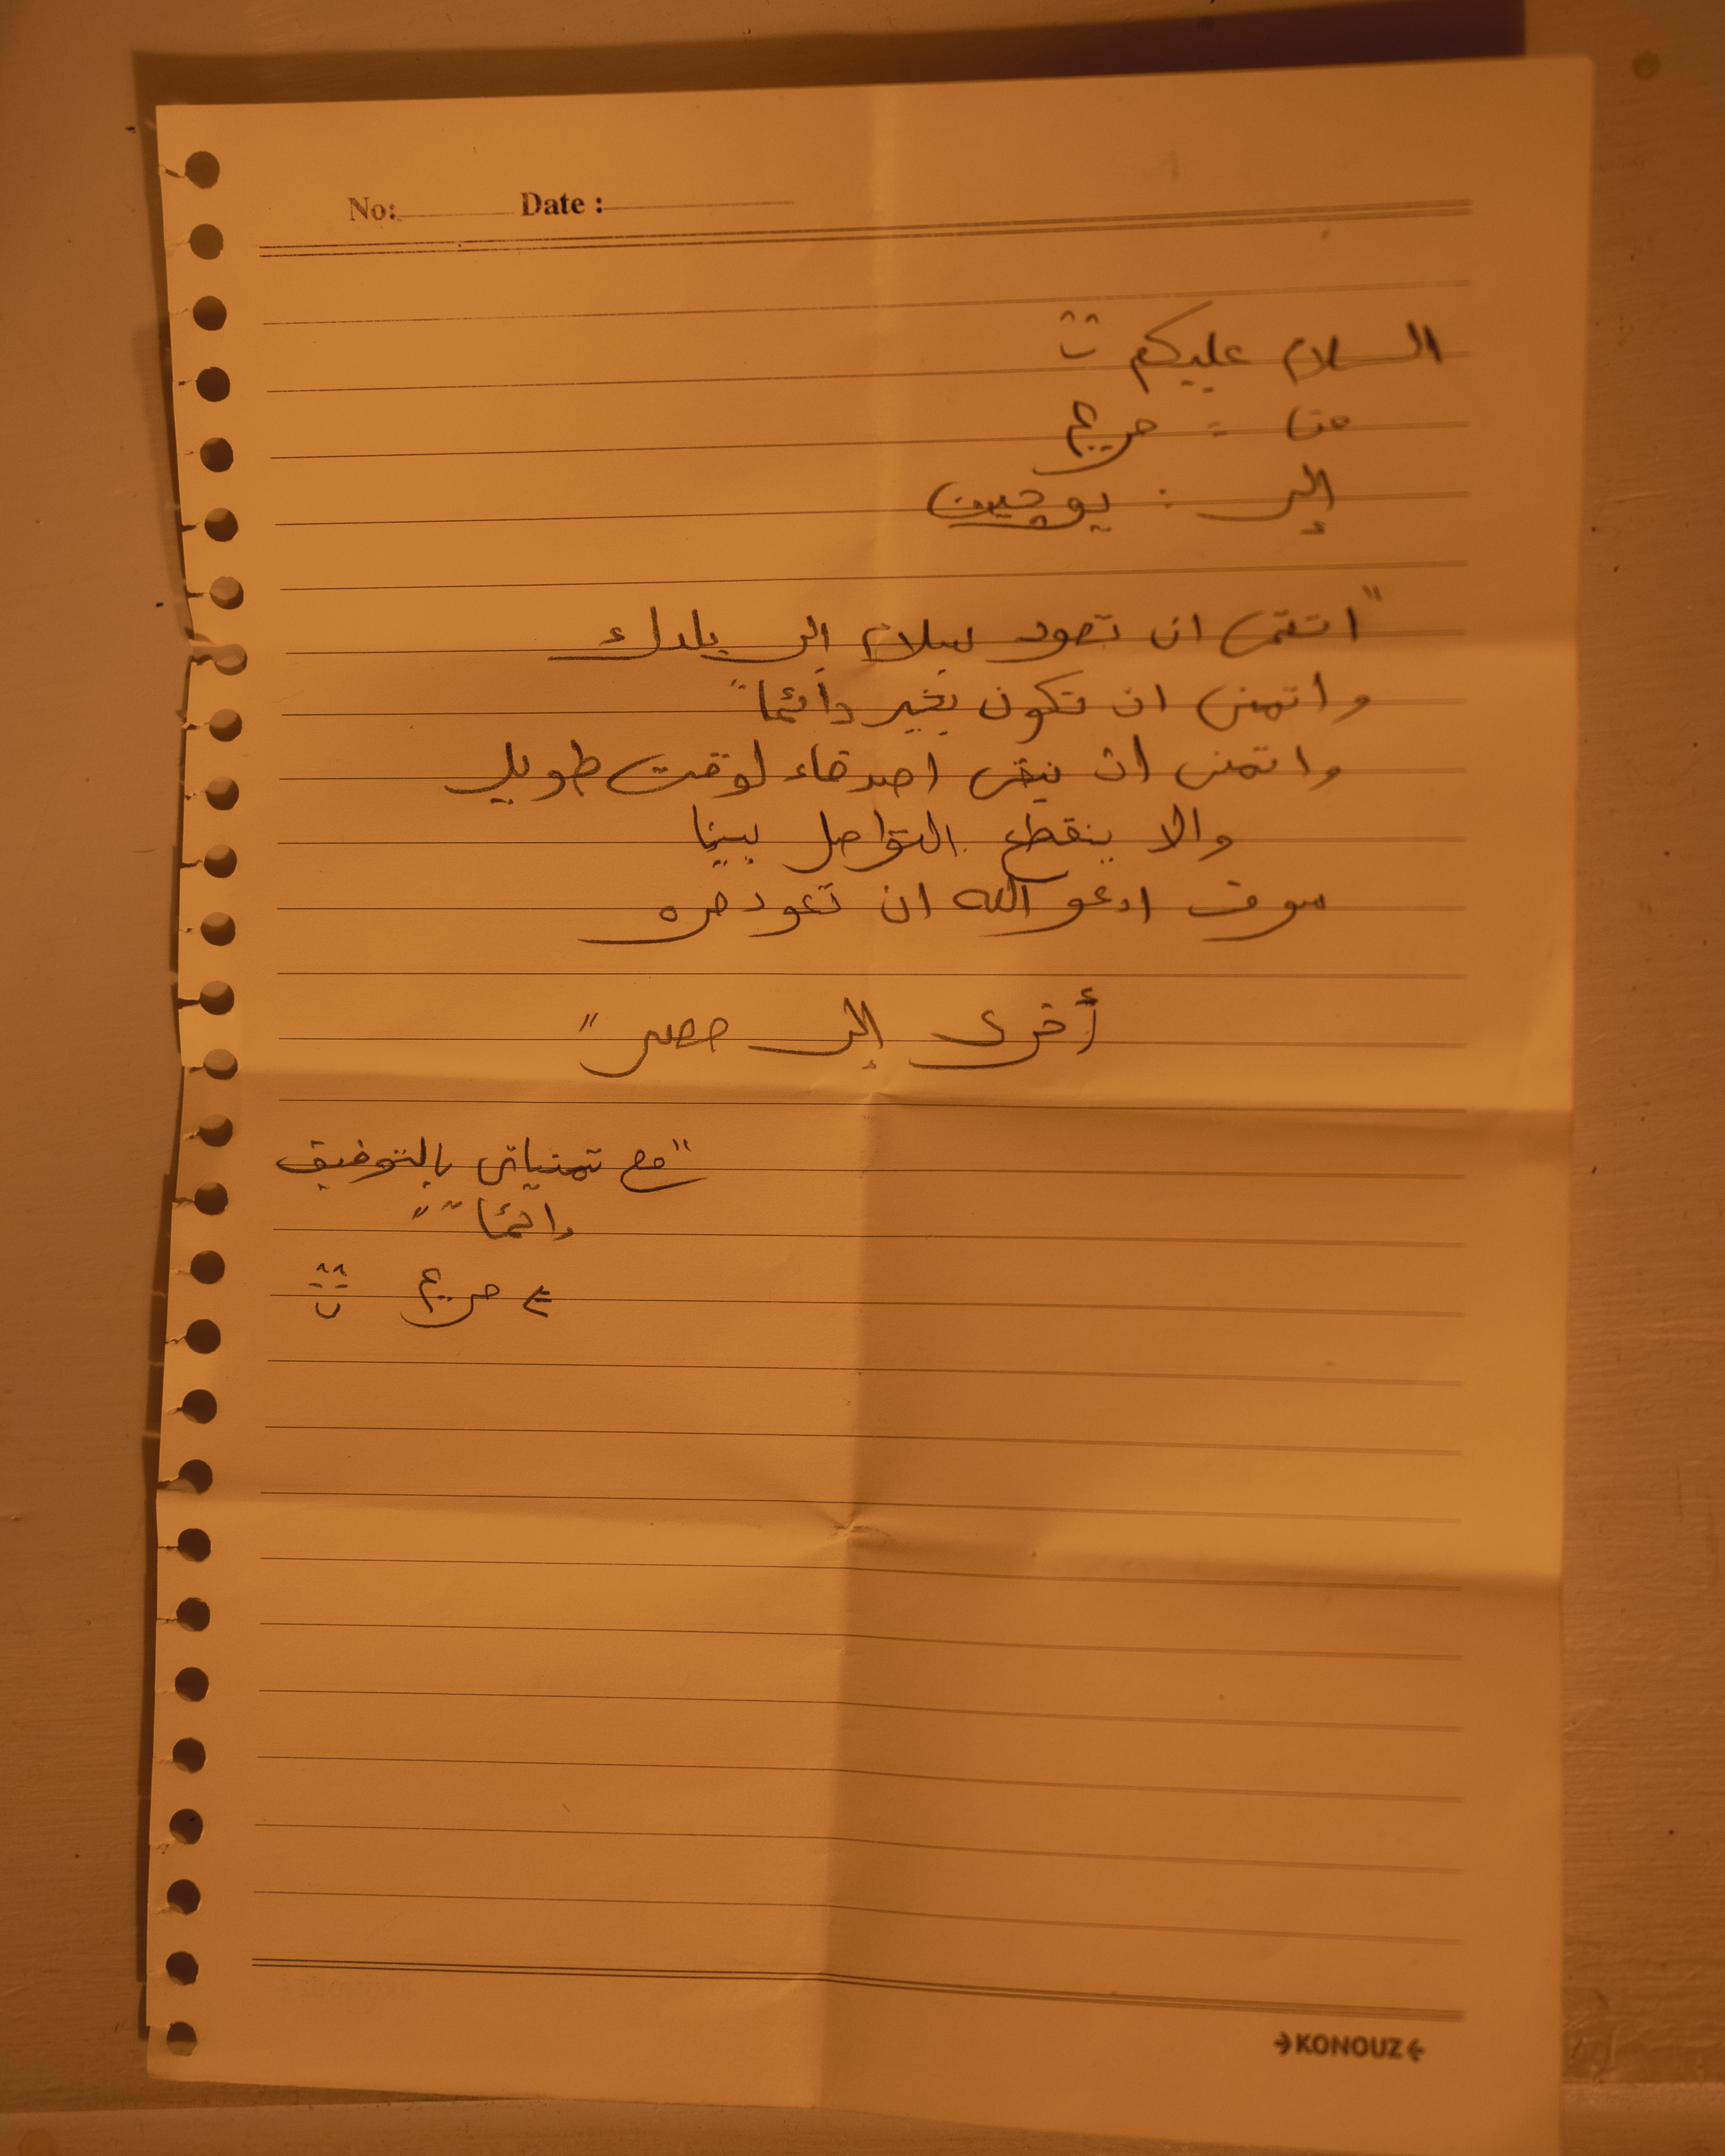 No: Date :
السلام عليكم
من : مريم
إلى : يوجين
"اتمنى ان تعود بسلام الى بلدك
واتمنى ان تكون بخير دائمًا"
واتمنى ان نبقى اصدقاء لوقت طويل
والا ينقطع التواصل بيننا
سوف ادعو الله ان تعود مره
أخرى إلى مصر "
"مع تمنياتى بالتوفيق
دائمًا "
مريم
KONOUZ